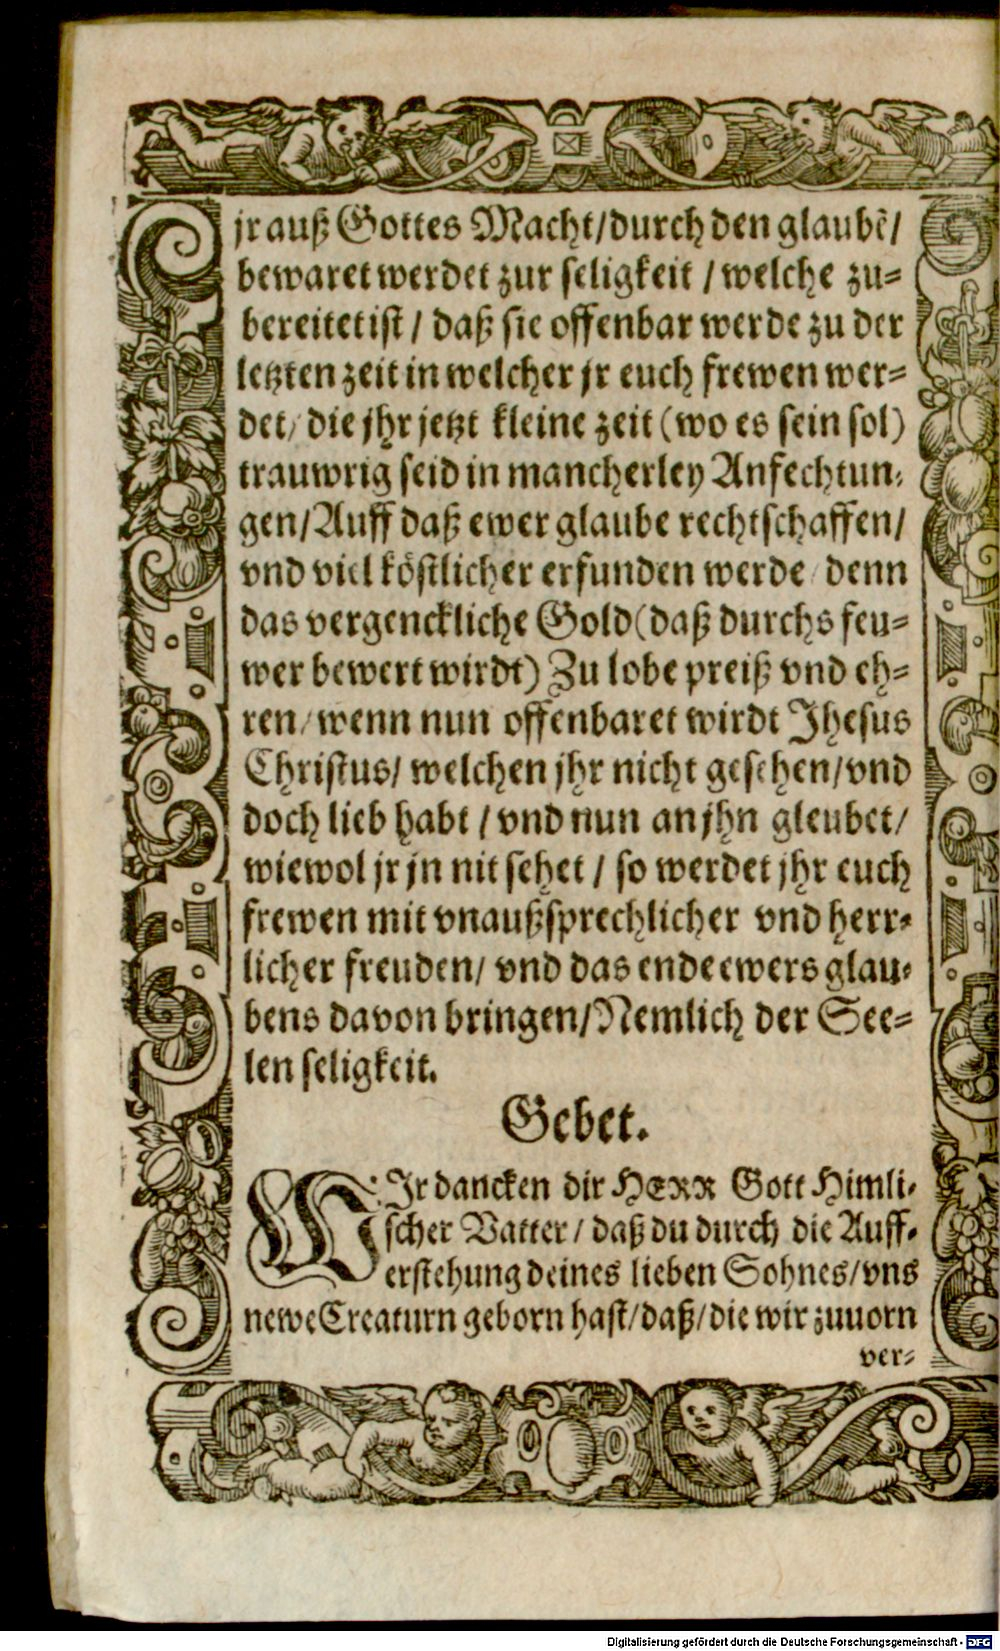 jr auß Gottes Macht/durch den glaubẽ/
bewaret werdet zur seligkeit / welche zu=
bereitet ist / daß sie offenbar werde zu der
letzten zeit in welcher jr euch frewen wer=
det/ die jhr jetzt kleine zeit (wo es sein sol)
trauwrig seid in mancherley Anfechtun=
gen/Auff daß ewer glaube rechtschaffen/
vnd viel köstlicher erfunden werde / denn
das vergenckliche Gold (daß durchs feu=
wer bewert wirdt) Zu lobe preiß vnd eh=
ren/ wenn nun offenbaret wirdt Jhesus
Christus/ welchen jhr nicht gesehen/vnd
doch lieb habt / vnd nun an jhn gleubet/
wiewol jr jn nit sehet / so werdet jhr euch
frewen mit vnaußsprechlicher vnd herr=
licher freuden/ vnd das ende ewers glau=
bens davon bringen/Nemlich der See=
len seligkeit.
Gebet.
WJr dancken dir HERR Gott Himli=
scher Vatter / daß du durch die Auff=
erstehung deines lieben Sohnes/vns
newe Creaturn geborn hast/daß/die wir zuuorn
ver=
Digitalisierung gefördert durch die Deutsche Forschungsgemeinschaft - DFG